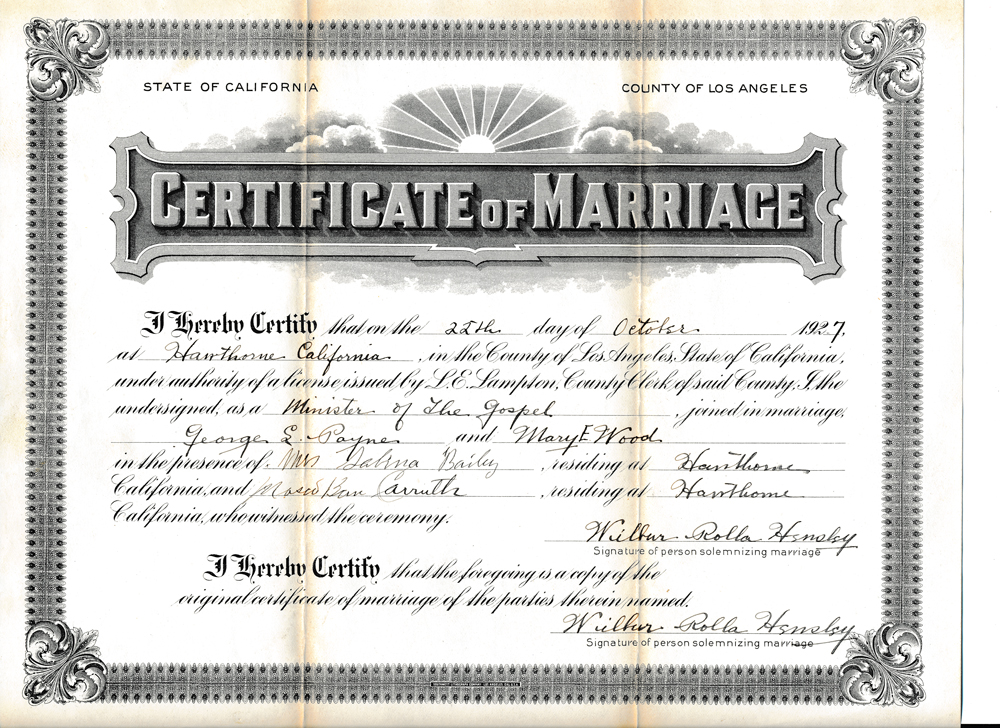 STATE OF CALIFORNIA COUNTY OF LOS ANGELES
CERTIFICATE OF MARRIAGE
I Hereby Certify that on the 22th day of October 1927,
at Hawthorne California, in the County of Los Angeles, State of California,
under authority of a license issued by L.E. Lampton, County Clerk of said County, I, the
undersigned, as a Minister of The Gospel, joined in marriage,
George L. Payne and Mary E Wood
in the presence of Mrs Bailey, residing at Hawthorne
California, and Carruth, residing at Hawthorne
California, who witnessed the ceremony.
Wilbur Rolla Hensley
Signature of person solemnizing marriage
I Hereby Certify that the foregoing is a copy of the
original certificate of marriage of the parties therein named.
Wilbur Rolla Hensley
Signature of person solemnizing marriage